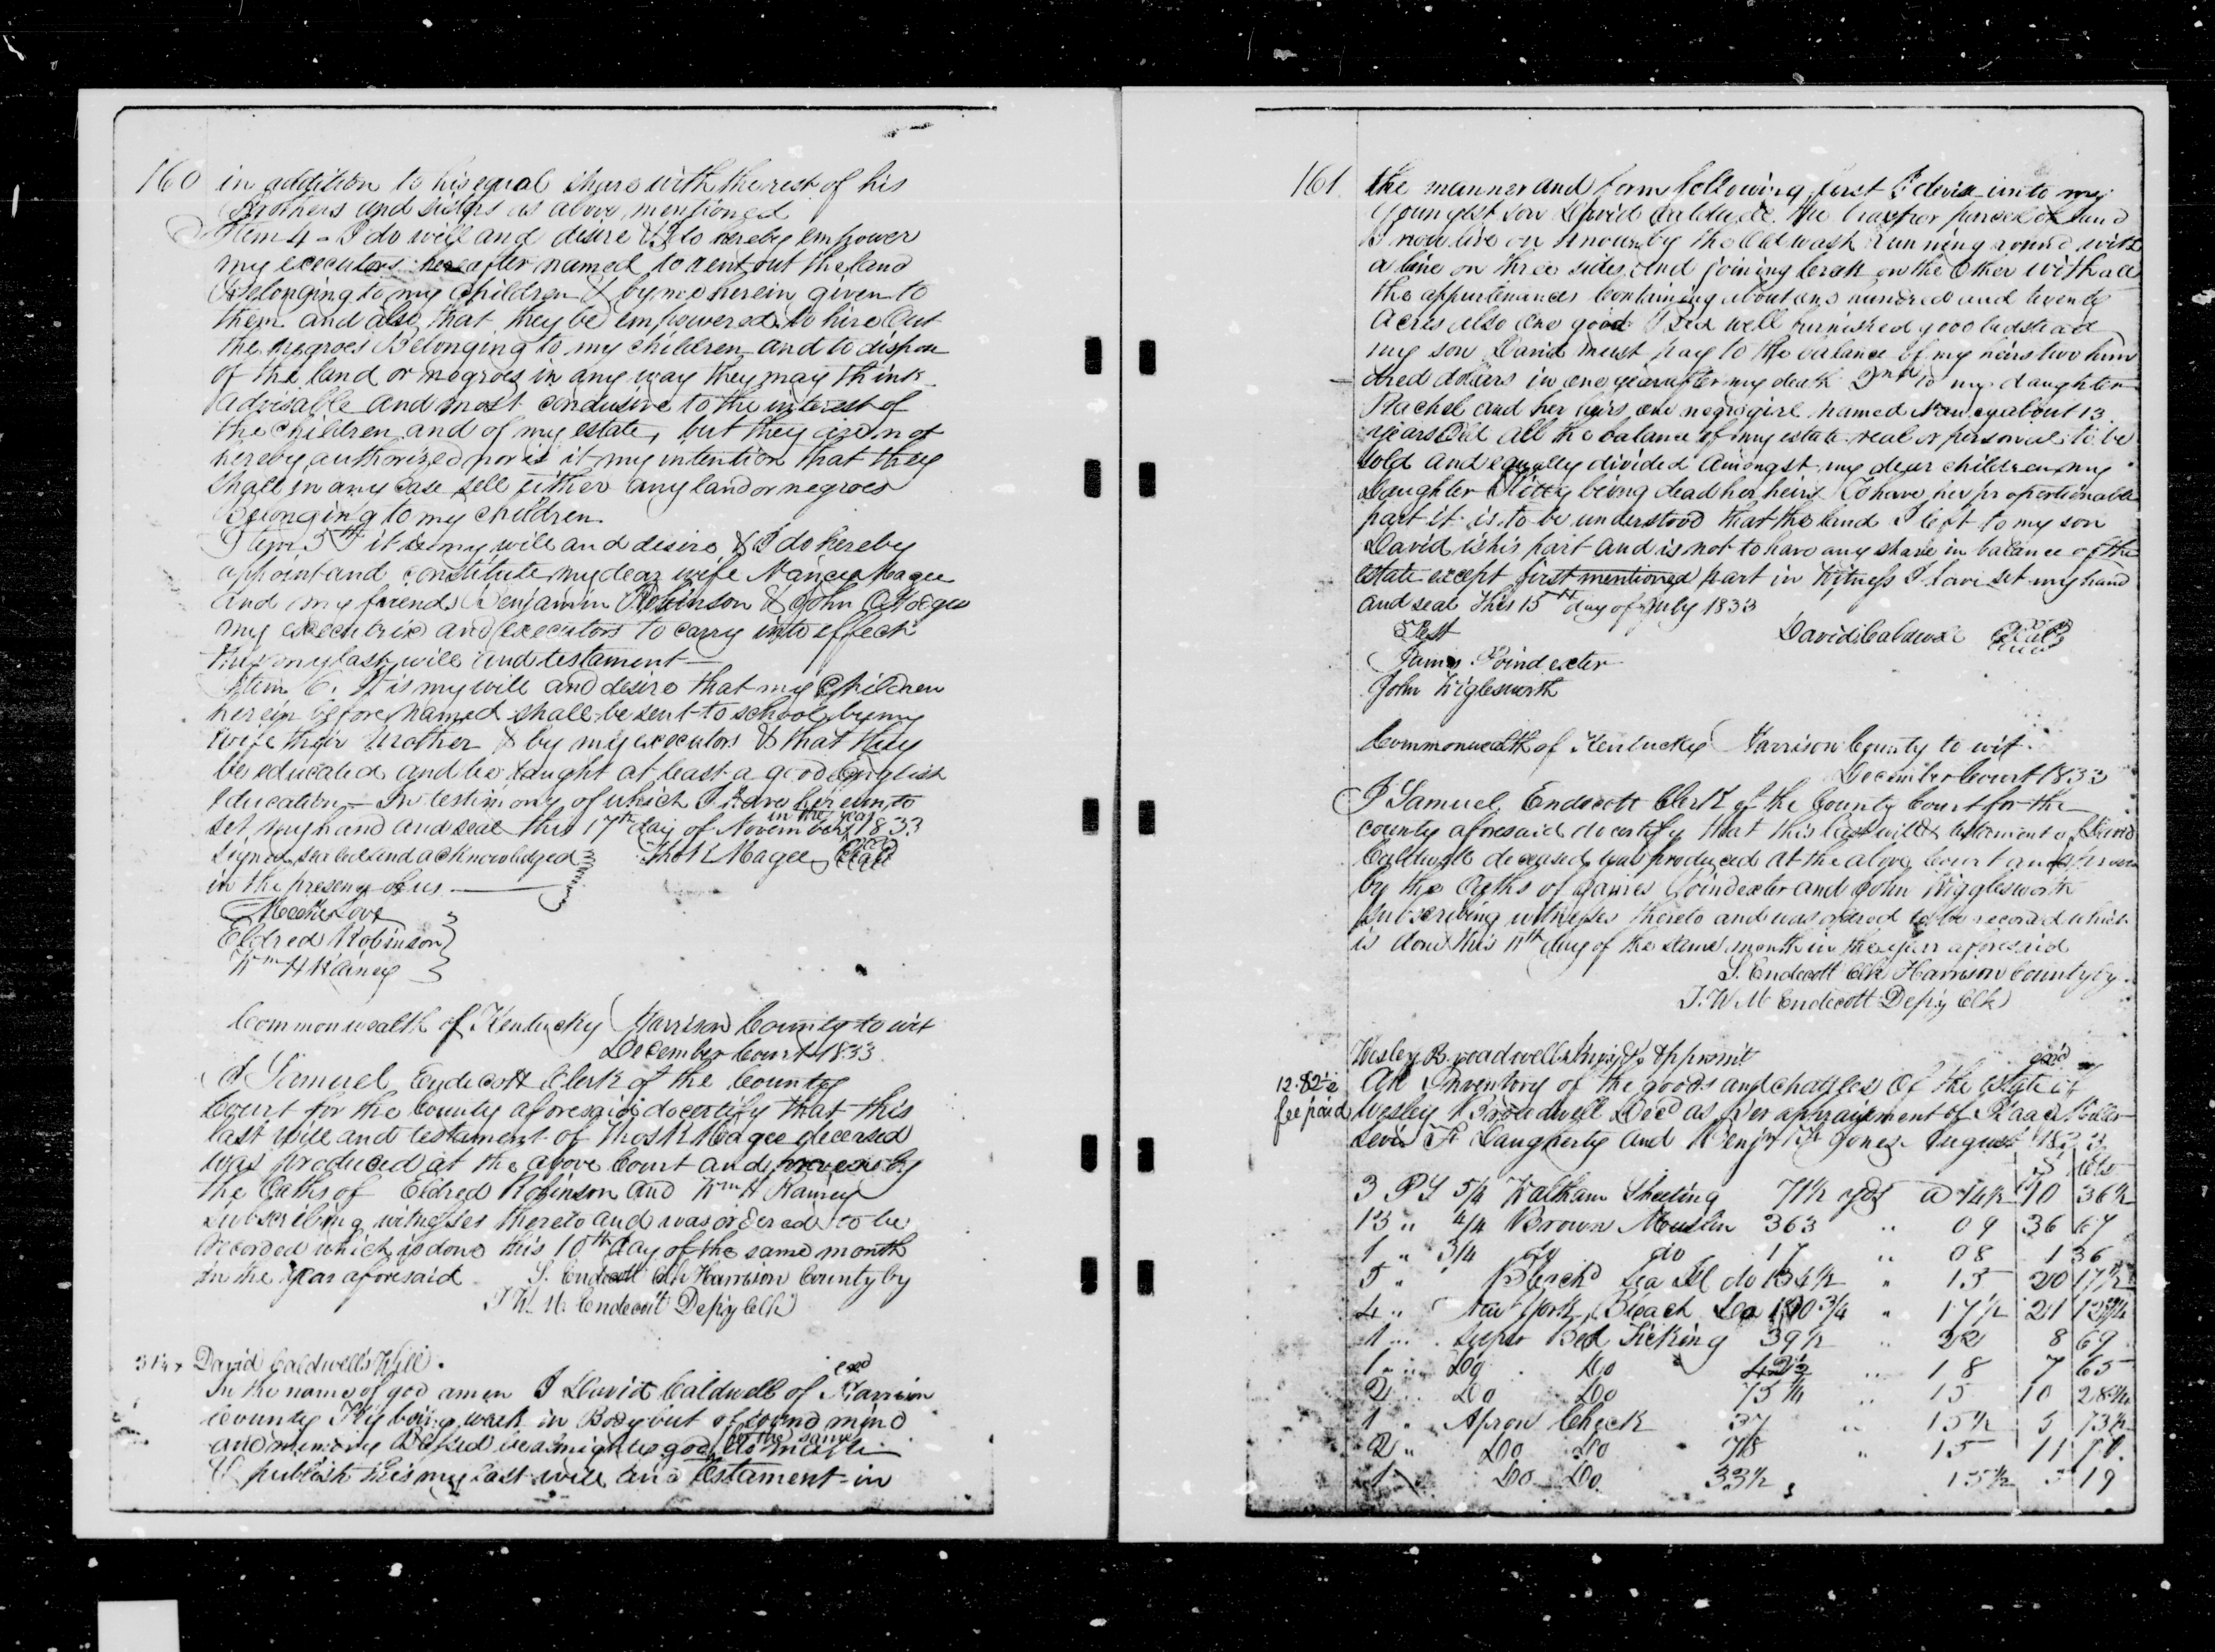 160 in addition to his equal share with the rest of his
Brothers and sisters as above mentioned
Item 4 - I do will and desire & I do hereby empower
my executors hereafter named to rent out the land
Belonging to my Children & by me herein given to
them and also that they be empowered to hire out
the negroes Belonging to my children and to dispose
of the land or negroes in any way they may think
advisable and most condusive to the interest of
the children and of my estate, but they are not
hereby authorised nor is it my intention that they
shall in any case sell either any land or negroes
Belonging to my children
Item 5th it is my will and desire & I do hereby
appoint and constitute my dear wife Nancy Magee
and my friends Benjamin Robinson & John
my executrix and executors to carry into effect
this my last will and testament —
Item 6. It is my will and desire that my Children
herein before named shall be sent to school by my
wife their Mother & by my executors & that they
be educated and be taught at least a good English
education - In testimony of which I have hereunto
set my hand and seal this 17th day of November in the year 1833
signed sealed and acknowledged Thos K Magee Seal
in the presence of us
Love
Eldred Robinson
Wm H Rainey
Commonwealth of Kentucky Harrison County to wit
December Court 1833
I Samuel Endecott Clerk of the County
Court for the County aforesaid do certify that this
last will and testament of Thos K Magee deceased
was produced at the above Court and proven by
the Oaths of Eldred Robinson and Wm H Rainey
subscribing witnesses thereto and was ordered to be
recorded which is done this 10th day of the same month
in the year aforesaid S. Endecott Clk Harrison County by
T. W. M. Endecott Depy Clk
David Caldwell's Will.
In the name of god amen I David Caldwell of Harrison
County Ky being weak in Body but of sound mind
and memory Blessed be almighty god for the same do make
& publish this my last will and testament in
161 the manner and form following first I devise unto my
youngest son David Caldwell the tract or parcel of land
I now live on known by the Old wash running round with
a line on three sides and joining on the Other with all
the appurtenances Containing about one hundred and twenty
Acres also one good Bed well furnished good bedstead
my son David must pay to the balance of my heirs two hun
dred dollars in one year after my death 2nd to my daughter
Rachel and her heirs one negro girl named Nancy about 13
years Old all the balance of my estate real or personal to be
sold and equally divided Amongst my dear children my
Daughter being dead her heirs To have her proportionable
part it is to be understood that the land I left to my son
David is his part and is not to have any share in balance of the
estate except first mentioned part in Witness I have set my hand
and seal this 15th day of July 1833
Test David Caldwell Seal
James Poindexter
John Wiglesworth
Commonwealth of Kentucky Harrison County to wit
December Court 1833
I Samuel Endecott Clerk of the County Court for the
county aforesaid do certify that this last will & testament of David
Caldwell deceased was produced at the above Court and proven
by the Oaths of James Poindexter and John Wigglesworth
subscribing witnesses thereto and was ordered to be record which
is done this 11th day of the same month in the year aforesaid
S. Endecott Clk Harrison County by
T. W. M Endecott Depy Clk
Wesley Broadwell's Inv &
12.82½ An Inventory of the goods and chattles Of the estate of
fee paid Wesley Broadwell Decd as per appraisement of Isaac
Lewis F Daugherty and Benj B Jones August 1833
$ cts
3 PS 5/4 Waltham Sheeting 71½ yds a 14½ 10 36½
13 " 4/4 Brown Muslin 363 " 09 36 67
1 " 3/4 do do 17 " 08 1 36
5 " Bleachd Sea Isl do 134½ " 15 20 17½
4 " New York Bleach Do 120¾ " 17½ 21 12¾
1 " super Bed Ticking 39½ " 22 8 69
1 " Do Do 42½ " 18 7 65
2 " Do Do 75¼ " 15 10 28¾
1 " Apron Check 37 " 15½ 5 73½
2 " Do Do 78 " 15 11 70
1 " Do Do 33½ 15½ 5 19